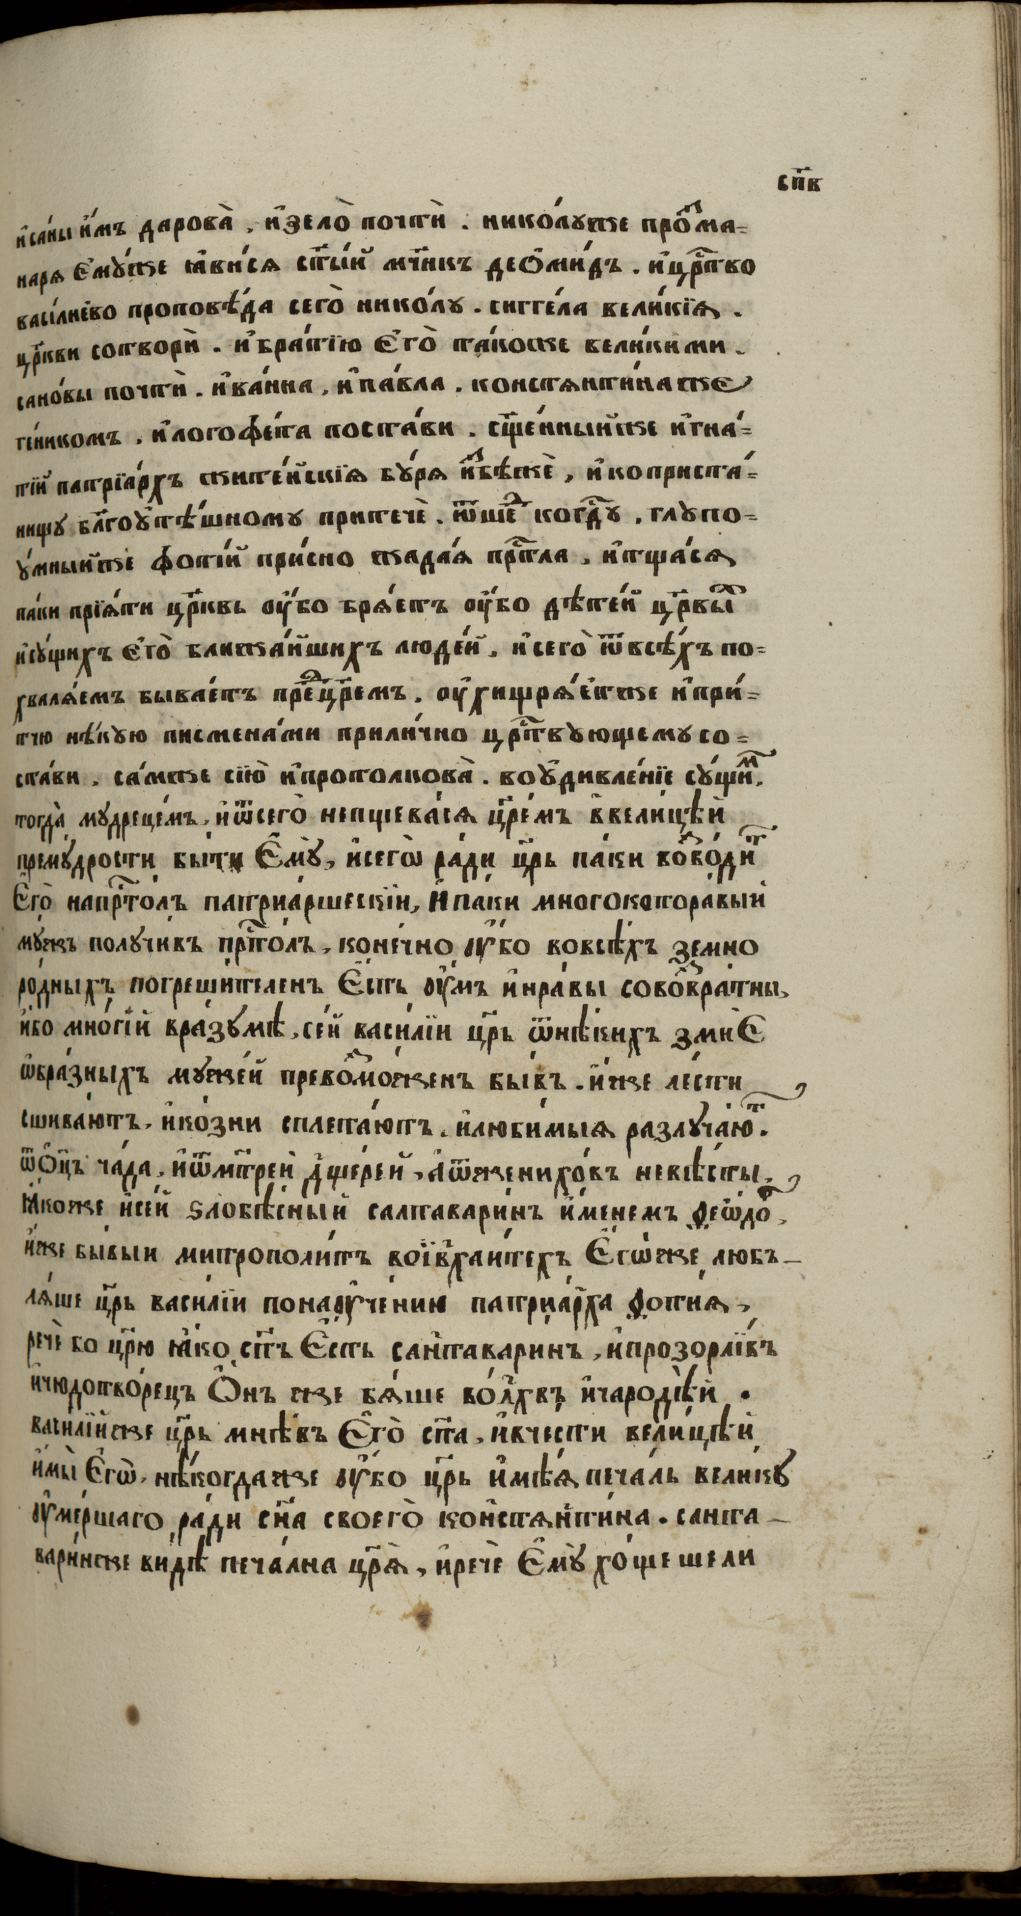 спв
исаны имъ дарова̀ , изѣло̀ почтѝ . нико́лу же пром̾а=
наря Ему́же ꙗви́ся ст҃ы́й мч҃нкъ деоми́дъ . и҆цр҃тво
васи́лиево проповѣ́да сего̀ нико́лу . сигге́ла вели́кїѧ .
цр҃кви сотворѝ . и҆бра́тїю Е҆го̀ та́коже вели́кими .
сано́вы почтѝ . и҆ва́нна , и҆па́вла . констѧнти́на же
те́никомъ , и҆логофе́та поста́ви . сщ҃е́нныйже и҆гна́=
тїй патрїа́рхъ жите́йскїѧ бу́ря и҆збѣжѐ , и҆ко приста́=
нищу бл҃гоу҆тѣ́шному притечѐ . ѿше́д̾ ко гд҃у , глупо=
у́мныйже фоти́й при́сно жада́ѧ пр҃тла , и҆тща́сѧ
па́ки прїѧ́ти цр҃ковь оу҆́бо брѧ́етъ оу҆́бо дѣте́й цр҃квы҃
и҆су́щихъ Е҆го̀ ближа́йшихъ люде́й , и҆ сего̀ ѿвсѣ́хъ по=
хвалѧ́емъ быва́етъ пред̾цр҃емъ . оу҆хищрѧ́етже и҆при́=
тчю нѣ́кую писмена́ми прили́чно цр҃твующему со=
ста́ви . са́мже сїю̀ и҆протолкова̀ . воу҆дивле́нїе су́щим̾
тогда̀ мудреце́мъ , и҆ѿсего̀ непщева́сѧ цр҃емъ ввели́цѣй
прему́дрости бы́ти Е҆му̀ , и҆сегѡ̀ ра́ди цр҃ь па́ки возво́дит̾
Е҆го̀ напр҃то́лъ патриа́ршескїй , И҆ паки многокоторавый
мужъ получи́въ пр҃то́лъ , коне́чно оу҆́бо вовсѣ́хъ земно
ро́дныхъ погреши́теленъ Е҆сть оу҆́мъ и҆нра́вы совозвратны ,
и҆́бо мно́гїй вразумѣ̀ , се́й васи́лїи цр҃ь ѿнѣ́кихъ змиЕ
ѡбра́зныхъ муже́й превозмо́женъ бы́въ . и҆́же ле́сти
сшива́ютъ , и҆ко́зни сплета́ютъ . и҆люби́мыѧ разлуча́ю҃т .
ѿОц҃ъ ча́да , и҆ѿмт҃рей дщере́й , а҆ѿженихо́въ невѣ́сты ,
ꙗ҆́коже и҆се́й ѕлобѣ́сный салтавари́нъ и҆́менемъ ѳеѡ́до҃р ,
и҆́же бы́выи митрополи́тъ вої҆вхаи́техъ Е҆го̀же любъ-
лѧ́ше цр҃ь васи́лїи понаоуче́нию патриа́рха фотиѧ ,
рече́ бо цр҃ю ꙗ҆́ко ст҃ъ Е҆сть сантавари́нъ , и҆прозорли́въ
и҆чюдотво́рецъ О҆́нъ же бѧ́ше во́лхвъ и҆чародѣ́й .
васи́лїйже цр҃ь мнѣ́въ Е҆го̀ ст҃а , и҆вче́сти вели́цѣй
и҆мы̀ Е҆гѡ̀ , нѣ́когда же оу҆́бо цр҃ь и҆мѣ́ѧ печа́ль велику
оу҆ме́ршаго ра́ди сн҃а своего̀ констѧнти́на . санта-
вари́нже ви́дѣ печа́лна цр҃ѧ̀ , и҆речѐ Е҆му̀ хо́щешели